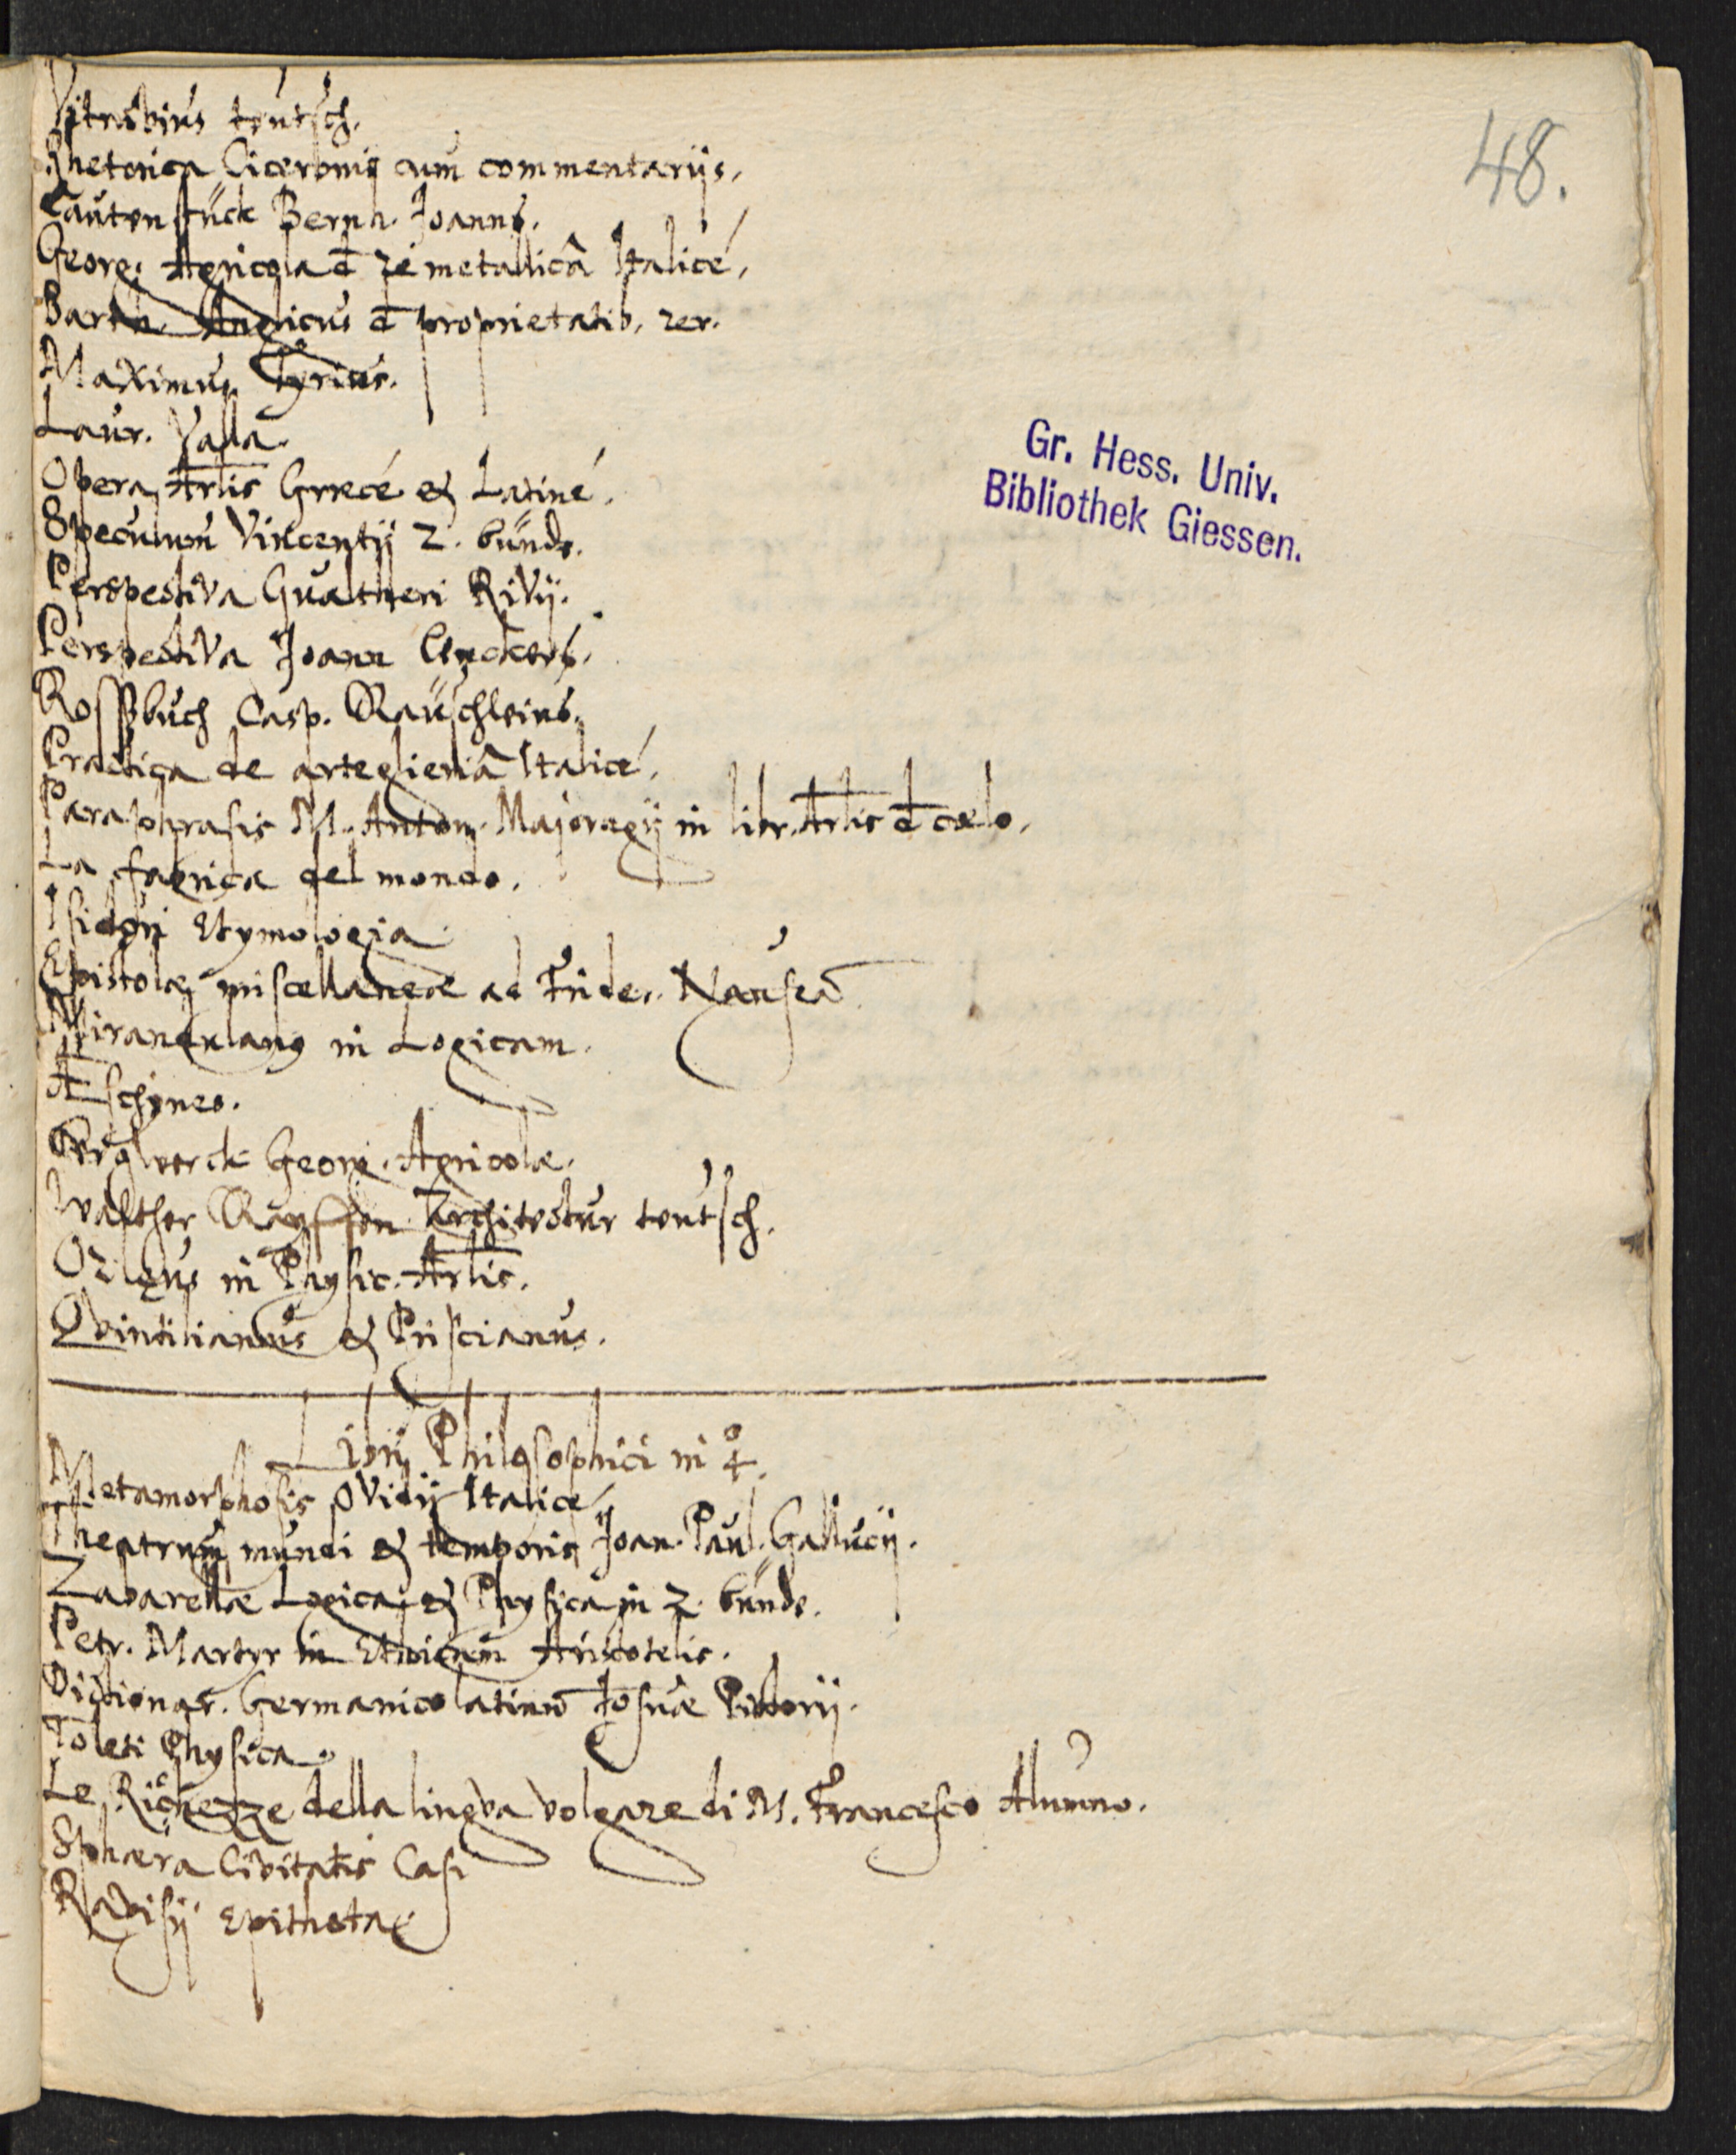 48.
Vitrúbiús teútsch.
Rhetorica Ciceronis cúm commentarijs.
Laútenstück Bernh. Joanns.
Georg. Agricola de re metallicâ Italicé.
Barth. Anglicús de proprietatib. rer.
Maximus Tyriús.
Laúr. Valla.
Opera Arlis Græcé & Latiné.
Specúlúm Vincentij 2. bünde.
Perspectiva Gualtheri Rivij.
Perspectiva Joann Lenckers.
Rossbúch Casp. Räúschleins.
Practica de arteglieriâ Italicé.
Paraphrasis M. Anton. Majoragij in libr. Arlis de cœlo.
La fabrica del mondo.
Isidori Etymologia.
Epistolæ miscellaneæ ad Frider. Nauseā.
Mirandulanq in Logicam.
Æschynes.
Bergwerck Georg. Agricolæ.
Walther Rÿffen Architectúr teútsch.
Orlgús in Physic. Arlis.
Qvintilianús & Priscianús.
Libri Philosophici in 4º.
Metamorphosis Ovidij Italicé.
Theatrúm múndi & temporis Joan. Paúl. Gallúcij.
Zabarellæ Logica & Physica in 2. bünde.
Petr. Martyr in Ethicam Aristotelis.
Dictionar. Germanicolatinū Josuæ Pictorij.
Toleti Physica.
Le Richezze della lingva volgare di M. Francesco Alunno.
Sphæra Civitatis Casi
Ravisij Epitheta.
Gr. Hess. Univ.
Bibliothek Giessen.